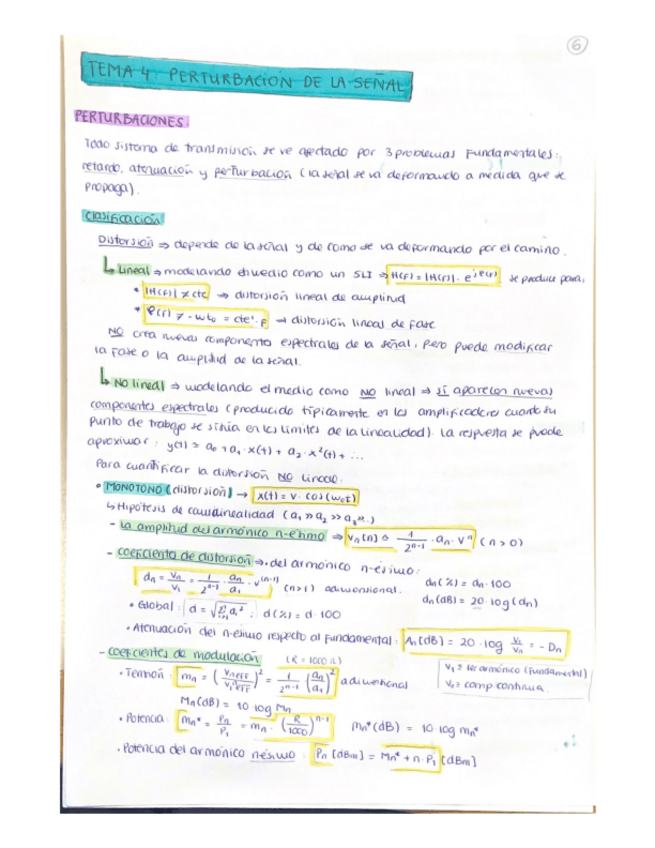 6
TEMA 4: PERTURBACIÓN DE LA SEÑAL
PERTURBACIONES:
Todo sistema de transmisión se ve afectado por 3 problemas fundamentales:
retardo, atenuación y perturbación (la señal se va deformando a medida que se
propaga).
Clasificación
Distorsión ⇒ depende de la señal y de como se va deformando por el camino.
↳ Lineal ⇒ modelando el medio como un SLI ⇒ H(f) = |H(f)| · e^{jφ(f)} se produce para:
* |H(f)| ≠ cte ⇒ distorsión lineal de amplitud
* φ(f) ≠ -wt₀ = cte'·f → distorsión lineal de fase
NO crea nuevas componentes espectrales de la señal, pero puede modificar
la fase o la amplitud de la señal.
↳ No lineal ⇒ modelando el medio como NO lineal ⇒ sí aparecen nuevas
componentes espectrales (producido típicamente en los amplificadores cuando su
punto de trabajo se sitúa en los límites de la linealidad). La respuesta se puede
aproximar: y(t) = a₀ + a₁·x(t) + a₂·x²(t) + ...
Para cuantificar la distorsión NO lineal:
• MONOTONO (distorsión) → x(t) = v·cos(w₀t)
↳ Hipótesis de cuasilinealidad (a₁ >> a₂ >> a₃ >> ..)
- la amplitud del armónico n-ésimo ⇒ Vn(n) ≈ 1/2^{n-1} · an · vⁿ (n > 0)
- coeficiente de distorsión ⇒ • del armónico n-ésimo:
dn = Vn/V₁ = 1/2^{n-1} · an/a₁ · v^{(n-1)} (n>1) adimensional. dn(%) = dn·100
dn(dB) = 20·log(dn)
• Global: d = ; d(%) = d·100
• Atenuación del n-ésimo respecto al fundamental: An(dB) = 20·log V₁/Vn = -Dn
- coeficientes de modulación (R = 1000 Ω)
V₁ = 1er armónico (fundamental)
V₀ = comp continua.
• Tensión: mn = = 1/2^{n-1} (an/a₁)² adimensional
Mn(dB) = 10·log Mn
• Potencia: mn* = Pn/P₁ = mn·(R/1000)^{n-1} Mn*(dB) = 10·log mn*
• Potencia del armónico nésimo: Pn [dBm] = Mn* + n·P₁ [dBm]